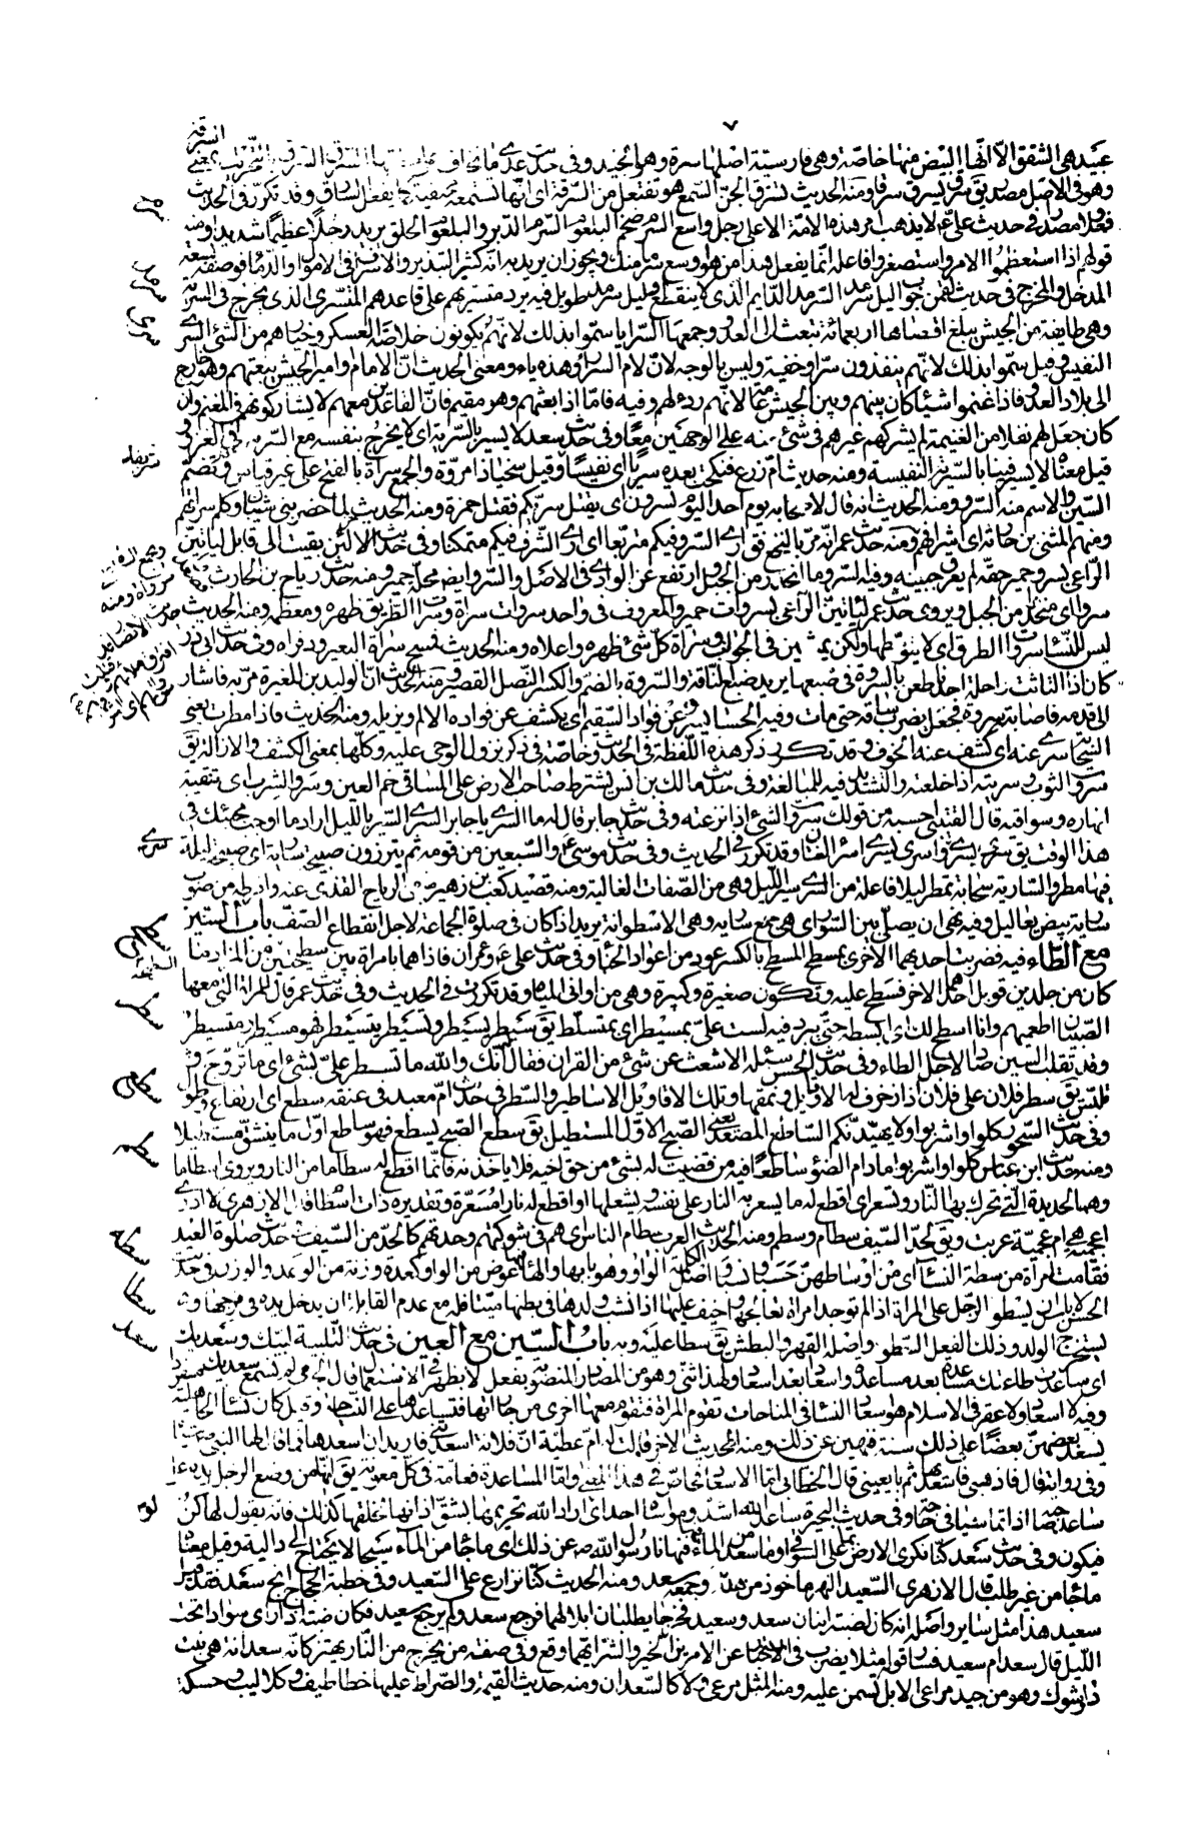 ٧
عبيد هي الشقق الا انها البيض منها خاصة وهي فارسية اصلها سره وهو الجيد وفي حديث عدي ما نخاف على مطيتها السرق السرق بالتحريك بمعنى السرقة
وهو في الاصل مصدر يق سرق يسرق سرقا ومنه الحديث تسترق الجن السمع هو تفتعل من السرقة اى انها تسمعه مختفية كما يفعل السارق وقد تكرر في الحديث
فعلا ومصدرا في حديث على ع لا يذهب امر هذه الامة الا على رجل واسع السرم ضخم البلعوم السرم الدبر والبلعوم الحلق يريد رجلا عظيما شديدا ومنه
قولهم اذا استعظموا الامر واستصغروا فاعله انما يفعل هذا من هو اوسع سرما منك ويجوز ان يريد به انه كثير التبذير والاسراف في الاموال والدماء فوصفه بسعة
المدخل والمخرج في حديث لقمن جواب ليل سرمد السرمد الدايم الذى لا ينقطع وليل سرمد طويل فيه يرد متسريهم على قاعدهم المتسرى الذى يخرج في السرية
وهي طايفة من الجيش يبلغ اقصاها اربعمائة تبعث الى العدو وجمعها السرايا سموا بذلك لانهم يكونون خلاصة العسكر وخيارهم من الشئ السرى
النفيس وقيل سموا بذلك لانهم ينفذون سرا وخفية وليس بالوجه لان لام السر راء وهذه ياء ومعنى الحديث ان الامام او امير الجيش يبعثهم وهو خارج
الى بلاد العدو فاذا غنموا شيئا كان بينهم وبين الجيش عامة لانهم ردء لهم وفيه فاما اذا بعثهم وهو مقيم فان القاعدين معهم لا يشاركونهم في المغنم وان
كان جعل لهم نفلا من الغنيمة لم يشركهم غيرهم في شئ منه على الوجهين معا وفي حديث سعد لا يسير بالسرية اى لا يخرج بنفسه مع السرية في الغزو و
قيل معناه لا يسير فينا بالسيرة النفيسة ومنه حديث ام زرع فنكحت بعده سريا اى نفيسا وقيل سخيا ذا مروة والجمع سراة بالفتح على غير قياس وقد تضم
السين والاسم منه السرو ومنه الحديث انه قال لاصحابه يوم احد اليوم تسرون اى يقتل سريكم فقتل حمزة ومنه الحديث لما حضر بني شيبان وكلم سراتهم
ومنهم المثنى بن حارثة اى اشرافهم ومنه حديث عمر انه مر بالنخع فقال ارى السرو فيكم متربعا اى ارى الشرف فيكم متمكنا وفي حديثه الاخر لئن بقيت الى قابل لياتين
الراعى بسرو حمير حقه لم يعرق جبينه وفيه السرو ما انحدر من الجبل وارتفع عن الوادى في الاصل والسرو ايض محلة حمير ومنه حديث رياح بن الحارث فصعدوا
سروا اى منحدرا من الجبل ويروى حديث عمر لياتين الراعى بسروات حمير والمعروف في واحد سروات سراة وسراة الطريق ظهره ومعظمه ومنه الحديث
ليس للنساء سروات الطرق اى لا يتوسطنها ولكن يمشين في الجوانب وسراة كل شئ ظهره واعلاه ومنه الحديث فمسح سراة البعير وذفراه وفي حديث ابى ذر
كان اذا التاثت راحلة احدنا طعن بالسروة في ضبعها يريد ضبع الناقة والسروة بالضم والكسر النصل القصير ومنه الحديث ان الوليد بن المغيرة مر به فاشار
الى قدمه فاصابته سروة فجعل يضرب ساقه حتى مات وفيه الحساء يسرو عن فواد السقيم اى يكشف عن فواده الالم ويزيله ومنه الحديث فاذا مطرت يعنى
السحابة سرى عنه اى كشف عنه الخوف وقد تكرر ذكر هذه اللفظة في الحديث وخاصة في ذكر نزول الوحى عليه وكلها بمعنى الكشف والازالة يق
سروت الثوب وسريته اذا خلعته والتشديد فيه للمبالغة وفي حديث مالك بن انس يشترط صاحب الارض على المساقى خم العين وسرو الشرب اى تنقية
انهاره وسواقيه قال القتيبى احسبه من قولك سروت الشئ اذا نزعته وفي حديث جابر قال له ما السرى يا جابر السرى السير بالليل اراد ما اوجب مجيئك في
هذا الوقت يق سرى يسرى سرى واسرى يسرى اسراء لغتان وقد تكرر في الحديث وفي حديث موسى ع والسبعين من قومه ثم يتبرزون صبيحة سارية اى صبيحة ليلة
فيها مطر والسارية سحابة تمطر ليلا فاعلة من السرى سير الليل وهي من الصفات الغالبة ومنه قصيد كعب بن زهير تنفى الرياح القذى عنه وافرطه من صوب
سارية بيض يعاليل وفيه نهى ان يصلى بين السوارى هي جمع سارية وهي الاسطوانة يريد اذا كان في صلوة الجماعة لاجل انقطاع الصف باب السين
مع الطاء فيه فضربت احديهما الاخرى بمسطح المسطح بالكسر عود من اعواد الخباء وفي حديث على ع وعمران فاذا هما بامراة بين سطيحتين من المزاد ما
كان من جلدين قوبل احدهما بالاخر فسطح عليه وتكون صغيرة وكبيرة وهي من اوانى المياه وقد تكررت في الحديث وفي حديث عمر قال للمراة التى معها
الصبيان اطعميهم وانا اسطح لك اى ابسطه حتى يبرد فيه لست على بمسيطر اى بمتسلط يق سيطر يسيطر وتسيطر يتسيطر فهو مسيطر ومتسيطر
وقد تقلب السين صادا لاجل الطاء وفي حديث الحسن سئله الاشعث عن شئ من القران فقال انك والله ما تسطر على بشئ اى ما تروج و
تلبس يق سطر فلان على فلان اذا زخرف له الاقاويل ونمقها وتلك الاقاويل الاساطير والسطر في حديث ام معبد في عنقه سطع اى ارتفاع وطول
وفي حديث السحور كلوا واشربوا ولا يهيدنكم الساطع المصعد يعنى الصبح الاول المستطيل يق سطع الصبح يسطع فهو ساطع اول ما ينشق مستطيلا
ومنه حديث ابن عباس كلوا واشربوا ما دام الضوء ساطعا فيه من قضيت له بشئ من حق اخيه فلا ياخذنه فانما اقطع له سطاما من النار ويروى اسطاما
وهما الحديدة التى تحرك بها النار وتسعر اى اقطع له ما يسعر به النار على نفسه ويشعلها او اقطع له نارا مسعرة وتقديره ذات اسطام قال الازهرى لا ادرى
اعجمية هي ام عجمية عربت ويق لحد السيف سطام وسطم ومنه الحديث العرب سطام الناس اى هم في شوكتهم وحدتهم كالحد من السيف في حديث صلوة العيد
فقامت امراة من سطة النساء اى من اوساطهن حسبا ونسبا واصل الكلمة الواو وهو بابها والهاء عوض من الواو كعدة وزنة من الوعد والوزن وفي حديث
الحسن لا باس ان يسطو الرجل على المراة اذا لم توجد امراة تعالجها وخيف عليها اذا نشب ولدها في بطنها ميتا فله مع عدم القابلة ان يدخل يده في فرجها و
يستخرج الولد وذلك الفعل السطو واصله القهر والبطش يق سطا عليه وبه باب السين مع العين في حديث التلبية لبيك وسعديك
اى ساعدت طاعتك مساعدة بعد مساعدة واسعادا بعد اسعاد ولهذا ثنى وهو من المصادر المنصوبة بفعل لا يظهر في الاستعمال قال الجرمى لم يسمع سعديك مفردا
وفيه لا اسعاد ولا عقر في الاسلام هو اسعاد النساء في المناحات تقوم المراة فتقوم معها اخرى من جاراتها فتساعدها على النياحة وقيل كان نساء الجاهلية
يسعد بعضهن بعضا على ذلك سنة فنهين عن ذلك ومنه الحديث الاخر قالت له ام عطية ان فلانة اسعدتنى فاريد ان اسعدها فما قال لها النبى ص شيئا
وفي رواية قال فاذهبى فاسعديها ثم بايعينى قال الخطابى اما الاسعاد فخاص في هذا المعنى واما المساعدة فعامة في كل معونة يق انها من وضع الرجل يده على
ساعد صاحبه اذا تماشيا في حاجة وفي حديث البحيرة ساعد الله اشد وموساه احد اى لو اراد الله تحريمها بشق اذانها لخلقها كذلك فانه يقول لها كن
فيكون وفي حديث سعد كنا نكرى الارض بما على السواقى وما سعد من الماء فيها فنهانا رسول الله ص عن ذلك اى ما جاء من الماء سيحا لا يحتاج الى دالية وقيل معناه
ما جاء من غير طلب قال الازهرى السعيد النهر ماخوذ من هذا وجمعه سعد ومنه الحديث كنا نزارع على السعيد وفي خطبة الحجاج انج سعد فقد قتل
سعيد هذا مثل ساير واصله انه كان لضبة ابنان سعد وسعيد فخرجا يطلبان ابلا لهما فرجع سعد ولم يرجع سعيد فكان ضبة اذا راى سوادا تحت
الليل قال سعد ام سعيد فسار قوله مثلا يضرب في الاستخبار عن الامرين الخير والشر ايهما وقع وفي صفة من يخرج من النار يهتز كانه سعدانة هي نبت
ذو شوك وهو من جيد مراعى الابل تسمن عليه ومنه المثل مرعى ولا كالسعدان ومنه حديث القيمة والصراط عليها خطاطيف وكلاليب وحسكة
سرم
سرمد
سرى
سطح
سطر
سطع
سطم
سطة
سطا
سعد